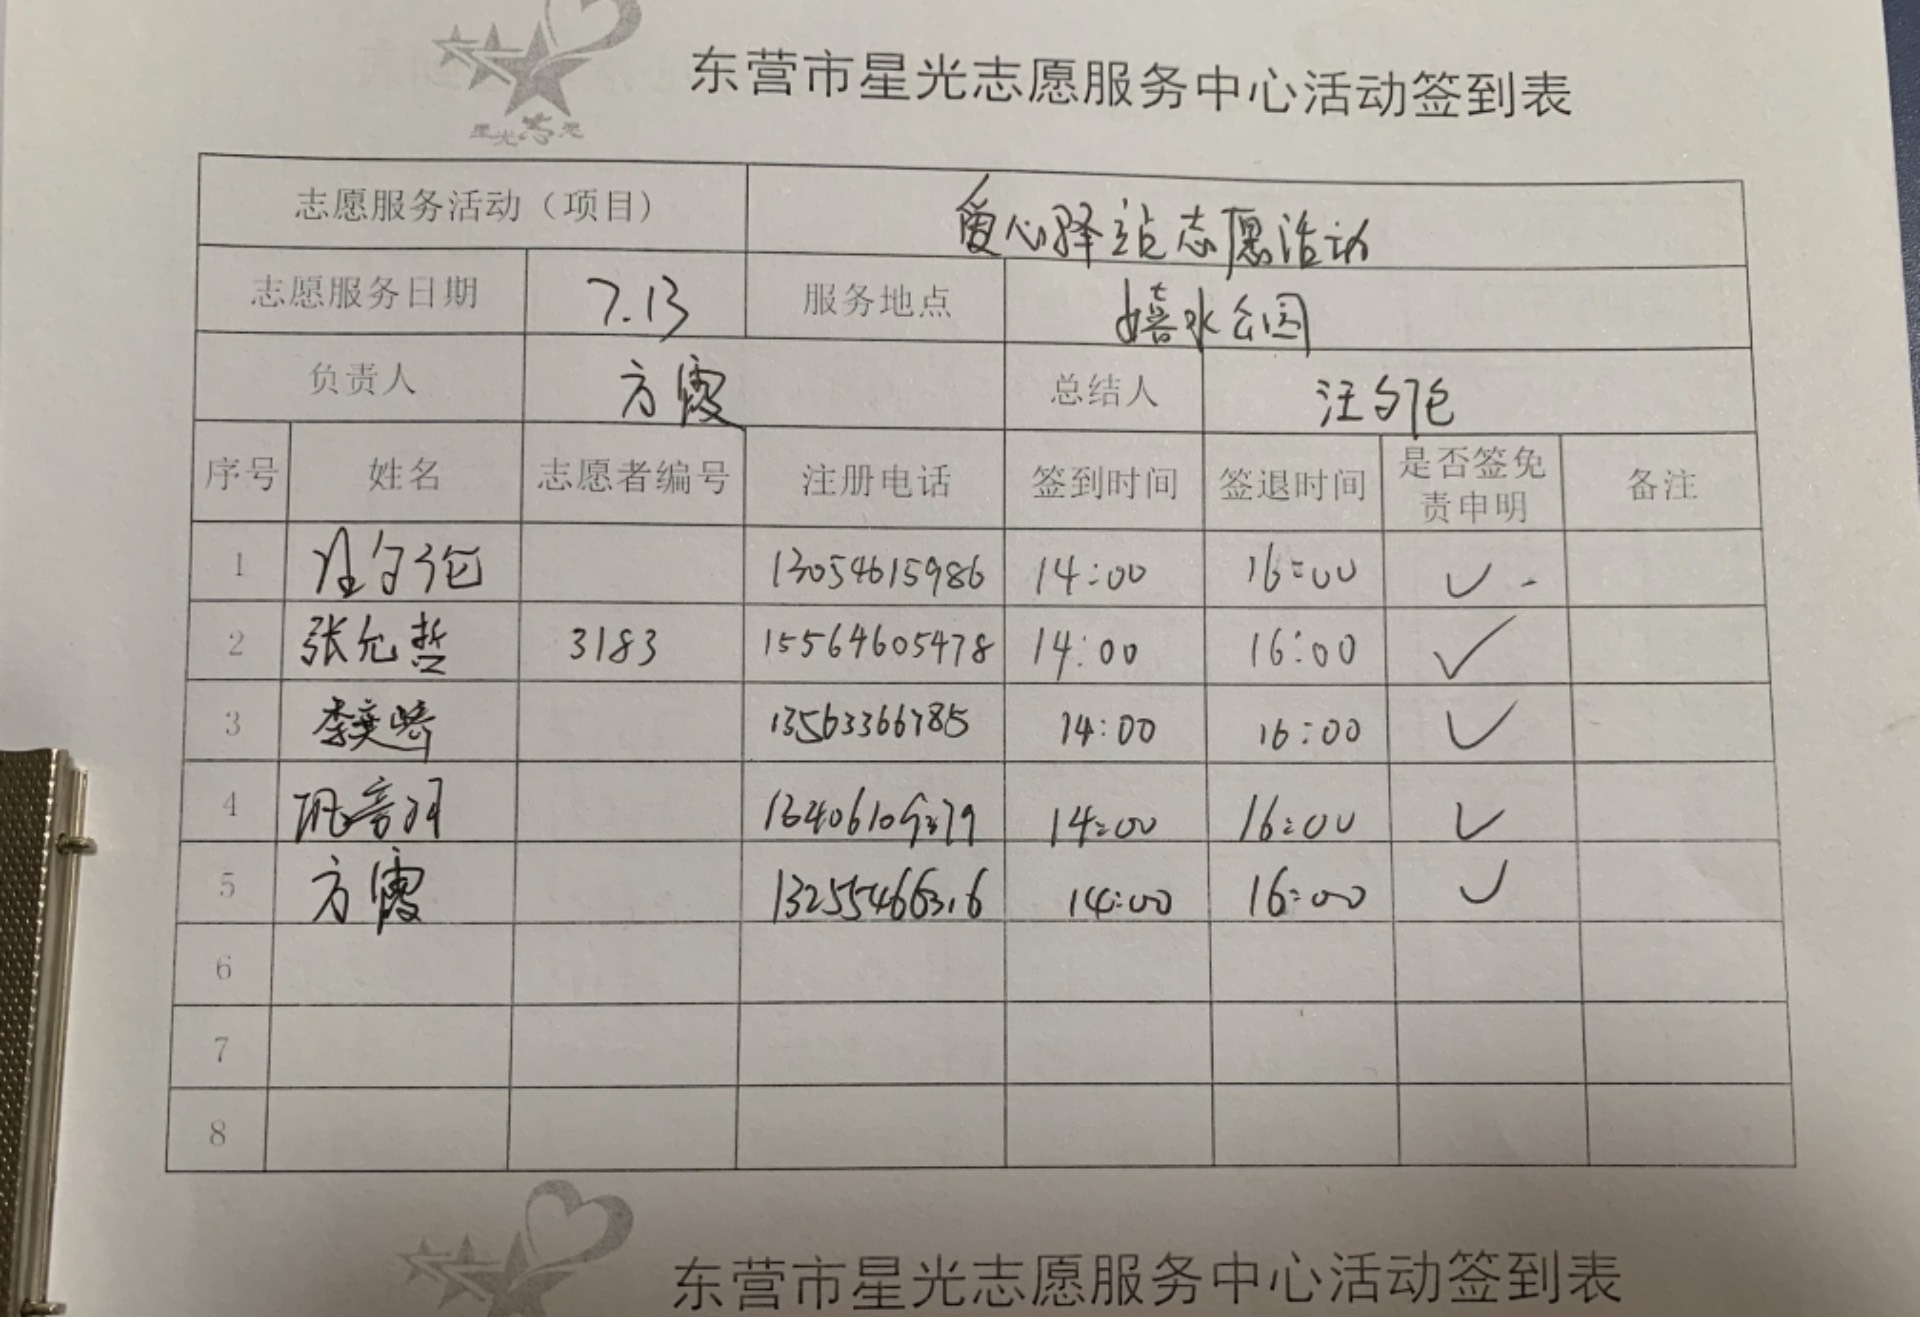 星光志愿
东营市星光志愿服务中心活动签到表
志愿服务活动（项目） 爱心驿站志愿活动
志愿服务日期 7.13 服务地点 嬉水公园
负责人 方霞 总结人 汪
序号 姓名 志愿者编号 注册电话 签到时间 签退时间 是否签免责申明 备注
1 汪 13054615986 14:00 16:00 ✓
2 张允哲 3183 15564605478 14:00 16:00 ✓
3 李奕 13563366785 14:00 16:00 ✓
4 14:00 16:00 ✓
5 方霞 14:00 16:00 ✓
6
7
8
东营市星光志愿服务中心活动签到表